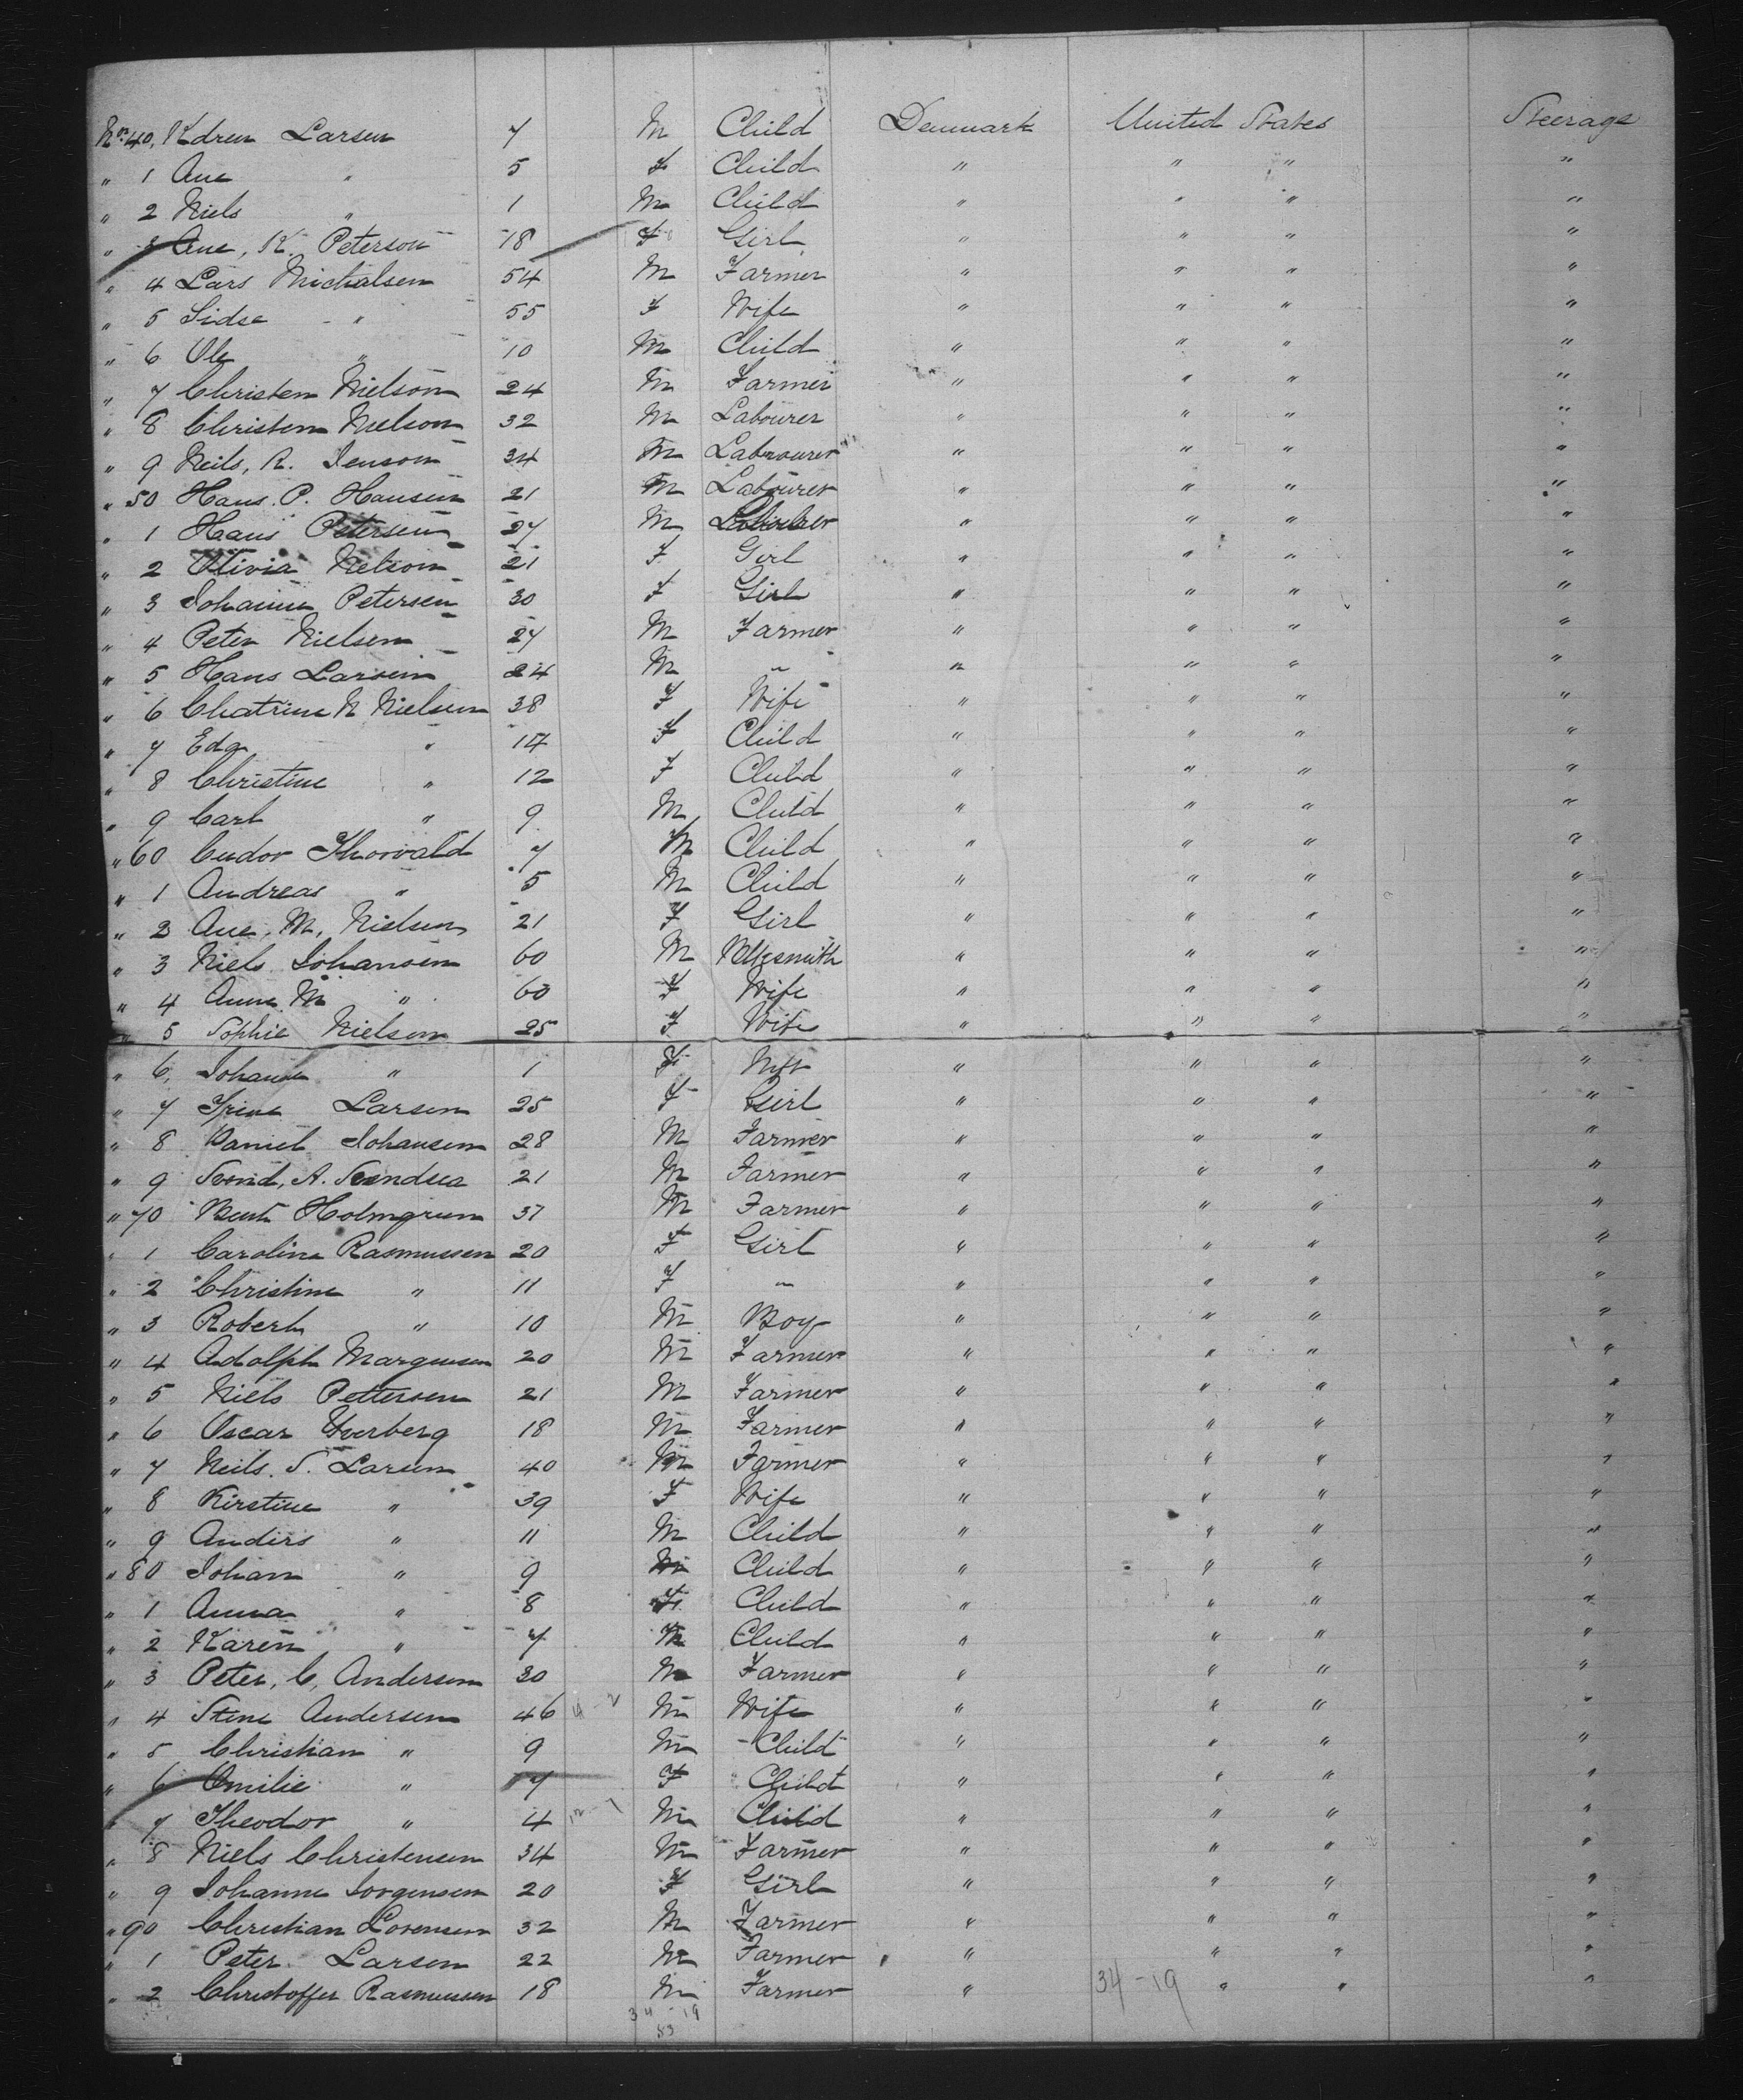 No. 40, Kdren Larsen 7 M Child Denmark United States Steerage
" 1 Ane " 5 F Child " " " "
" 2 Niels " 1 M Child " " " "
" 3 Ane, K. Peterson 18 F Girl " " " "
" 4 Lars Michalsen 54 M Farmer " " " "
" 5 Sidse " 55 F Wife " " " "
" 6 Ole " 10 M Child " " " "
" 7 Christen Nielson 24 M Farmer " " " "
" 8 Christen Nielson 32 M Labourer " " " "
" 9 Neils, R. Jenson 34 M Labrourer " " " "
" 50 Hans. P. Hansen 21 M Labourer " " " "
" 1 Hans Petersen 27 M Labourer " " " "
" 2 Olivia Nelson 21 F Girl " " " "
" 3 Johanne Petersen 30 F Girl " " " "
" 4 Peter Nielsen 27 M Farmer " " " "
" 5 Hans Larsen 24 M " " " " "
" 6 Chatrine N Nielsen 38 F Wife " " " "
" 7 Eda " 14 F Child " " " "
" 8 Christine " 12 F Child " " " "
" 9 Carl " 9 M Child " " " "
" 60 Cudor Thorvald 7 M Child " " " "
" 1 Andreas " 5 M Child " " " "
" 2 Ane, M, Nielsen 21 F Girl " " " "
" 3 Niels Johansen 60 M " " " "
" 4 Anne M " 60 F Wife " " " "
" 5 Sophie Nielsen 25 F Wife " " " "
" 6, Johanne " 1 F " " " "
" 7 Trine Larsen 25 F Girl " " " "
" 8 Daniel Johansen 28 M Farmer " " " "
" 9 Svend, A. Svendsea 21 M Farmer " " " "
" 70 Bent Holmgrem 37 M Farmer " " " "
" 1 Caroline Rasmussen 20 F Girl " " " "
" 2 Christine " 11 F " " " " "
" 3 Robert " 10 M Boy " " " "
" 4 Adolph Margensen 20 M Farmer " " " "
" 5 Niels Pettersen 21 M Farmer " " " "
" 6 Oscar 18 M Farmer " " " "
" 7 Neils. S. Larsen 40 M Farmer " " " "
" 8 Kirstine " 39 F Wife " " " "
" 9 Anders " 11 M Child " " " "
" 80 Johan " 9 M Child " " " "
" 1 Anna " 8 F Child " " " "
" 2 Karen " 7 M Child " " " "
" 3 Peter, C, Andersen 30 M Farmer " " " "
" 4 Stine Andersen 46 M Wife " " " "
" 5 Christian " 9 M Child " " " "
" 6 Emilie " 7 F Child " " " "
" 7 Theodor " 4 M Child " " " "
" 8 Niels Christensen 34 M Farmer " " " "
" 9 Johanne Jorgensen 20 F Girl " " " "
" 90 Christian Lorensen 32 M Farmer " " " "
" 1 Peter Larsen 22 M Farmer " " " "
" 2 Christoffer Rasmussen 18 M Farmer " 34-19 " " "
34-19
53